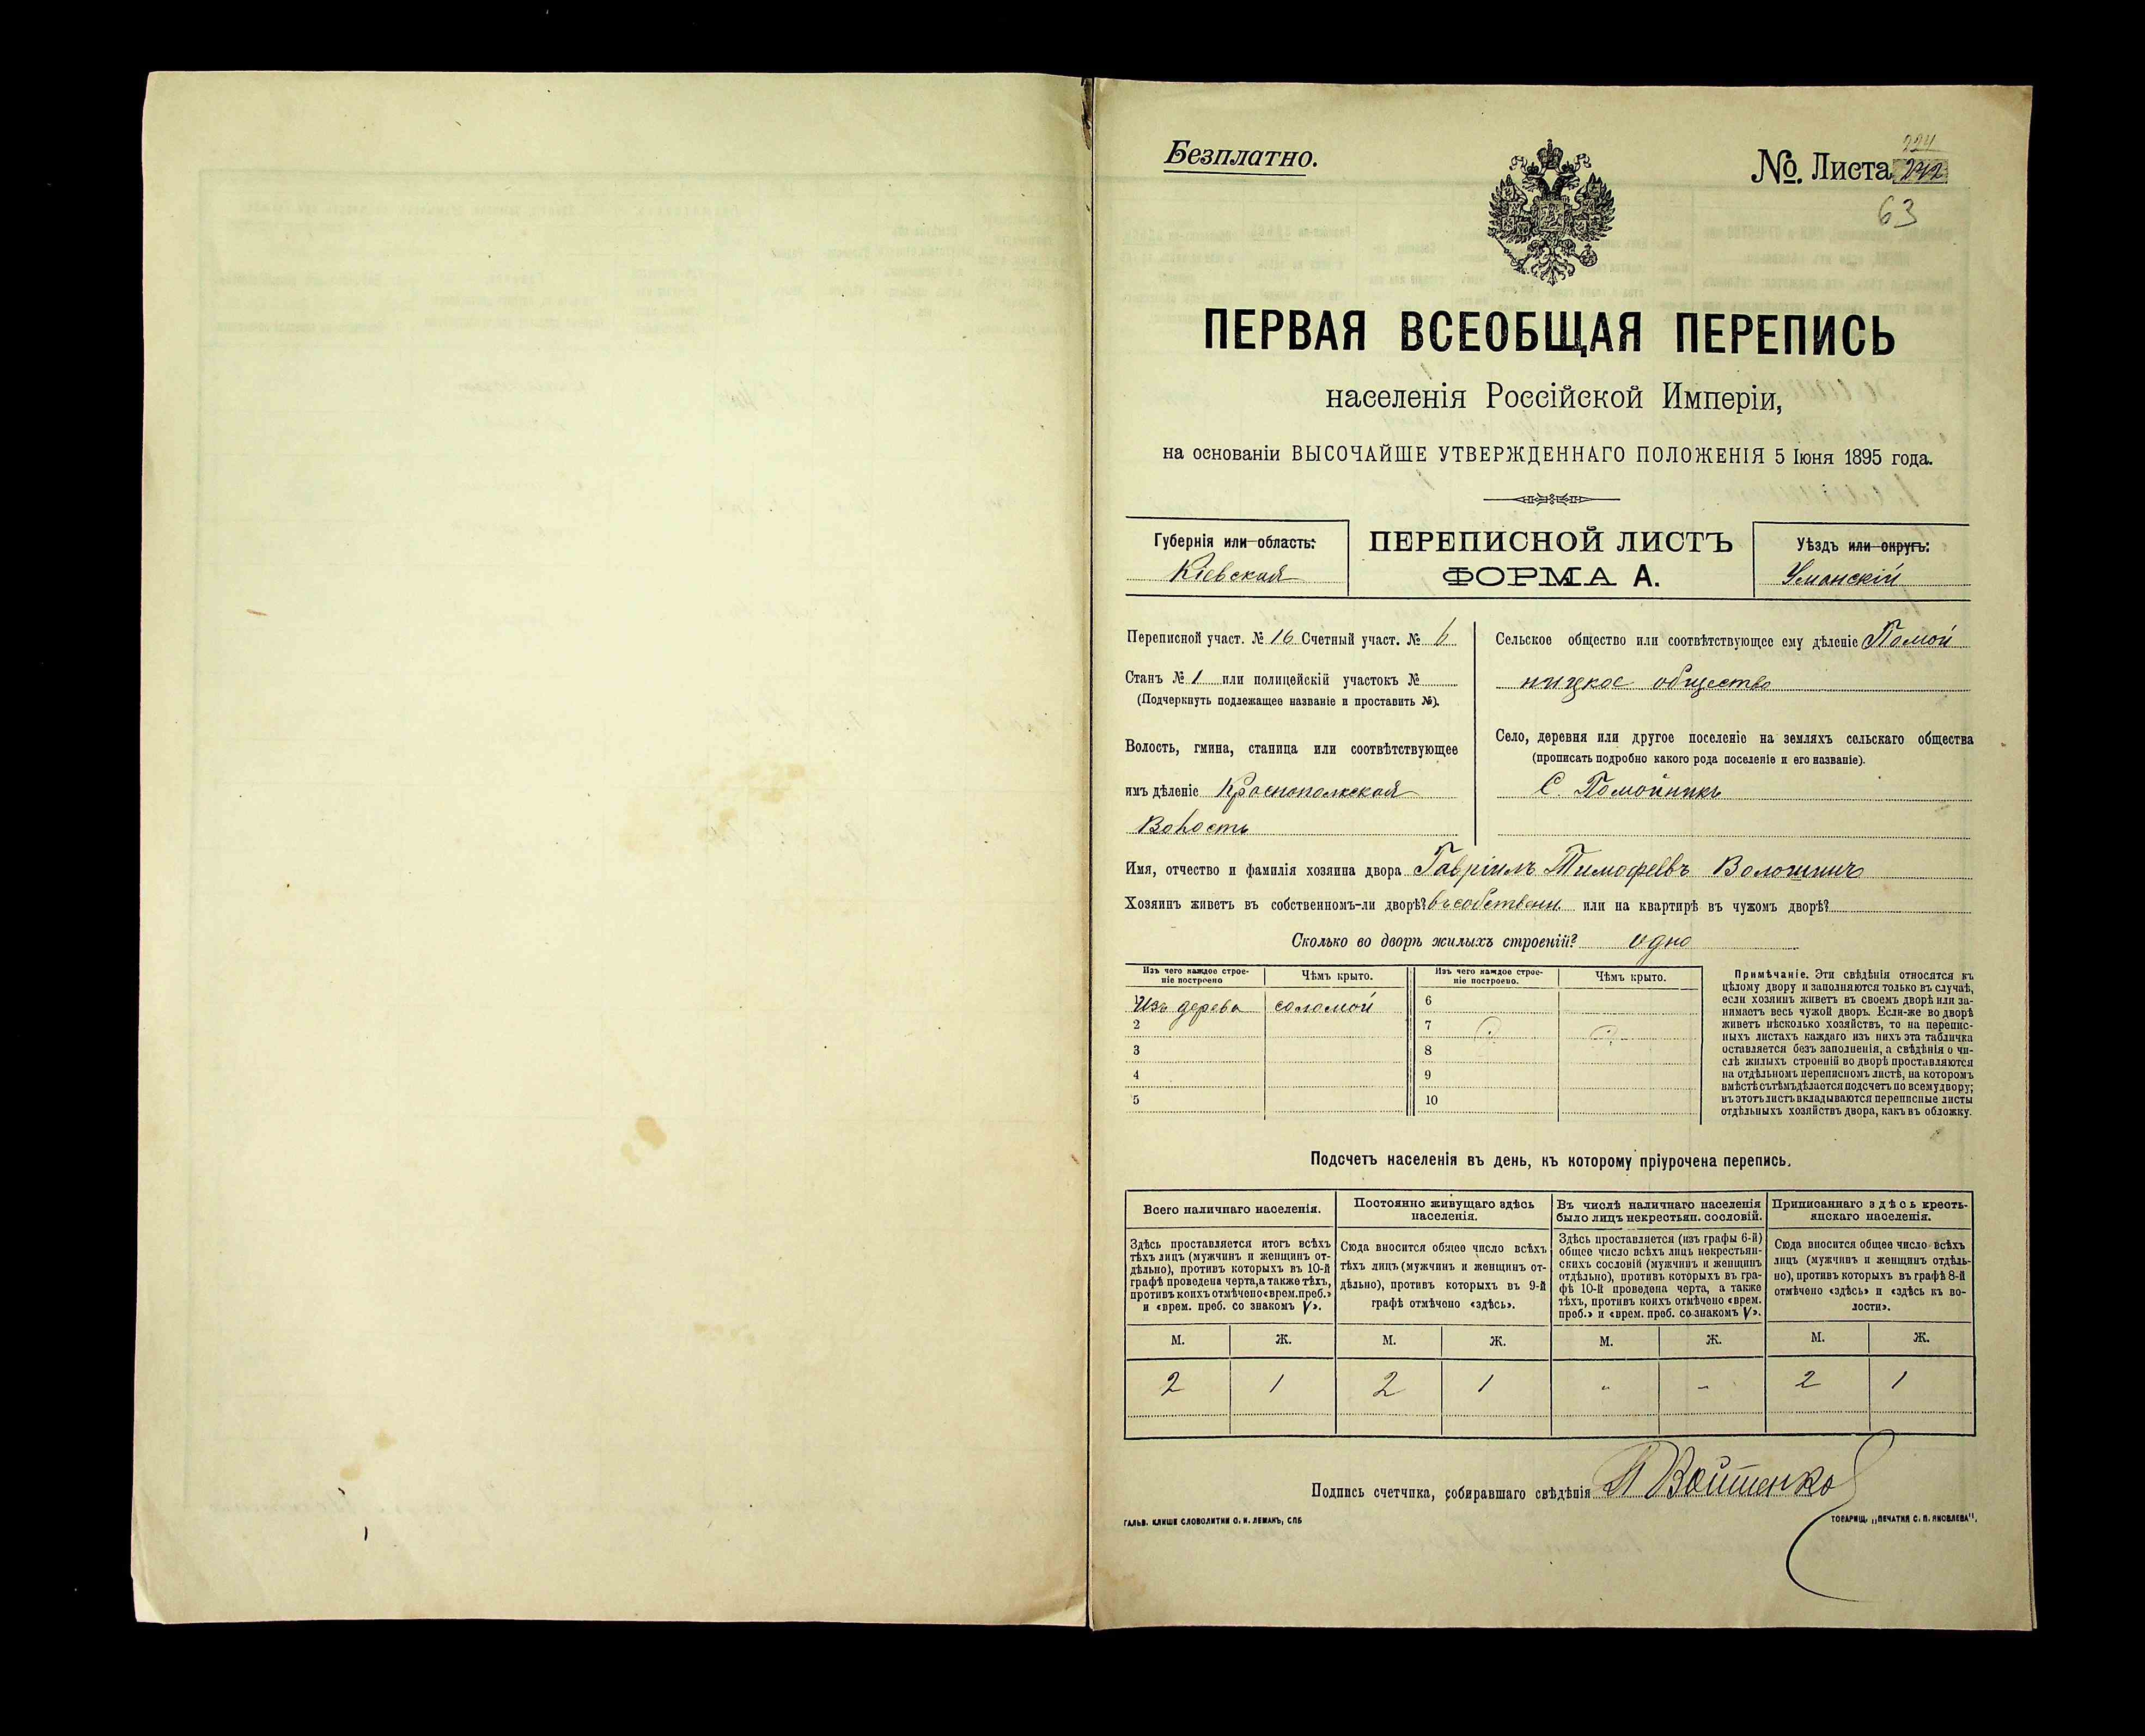 Безплатно.
224
№. Листа 242
63
ПЕРВАЯ ВСЕОБЩАЯ ПЕРЕПИСЬ
населенія Россійской Имперіи,
на основаніи ВЫСОЧАЙШЕ УТВЕРЖДЕННАГО ПОЛОЖЕНІЯ 5 Іюня 1895 года.
Губернія или область:
Кіевская
ПЕРЕПИСНОЙ ЛИСТЪ
ФОРМА А.
Уѣздъ или округъ:
Уманскій
Переписной участ. № 16 Счетный участ. № 6
Станъ № 1 или полицейскій участокъ №
(Подчеркнуть подлежащее названіе и проставить №).
Волость, гмина, станица или соотвѣтствующее
имъ дѣленіе Краснополкская
Волость
Сельское общество или соотвѣтствующее ему дѣленіе Помой
ницкое общество
Село, деревня или другое поселеніе на земляхъ сельскаго общества
(прописать подробно какого рода поселеніе и его названіе).
С. Помойникъ
Имя, отчество и фамилія хозяина двора Гавріилъ Тимофеевъ Волошинъ
Хозяинъ живетъ въ собственномъ-ли дворѣ? въ собственн. или на квартирѣ въ чужомъ дворѣ?
Сколько во дворѣ жилыхъ строеній? одно
Изъ чего каждое строе-
ніе построено
Чѣмъ крыто.
Изъ чего каждое строе-
ніе построено.
Чѣмъ крыто.
Изъ дерева соломой 6
2 7
3 8
4 9
5 10
Примѣчаніе. Эти свѣдѣнія относятся къ
цѣлому двору и заполняются только въ случаѣ,
если хозяинъ живетъ въ своемъ дворѣ или за-
нимаетъ весь чужой дворъ. Если-же во дворѣ
живетъ нѣсколько хозяйствъ, то на перепис-
ныхъ листахъ каждаго изъ нихъ эта табличка
оставляется безъ заполненія, а свѣдѣнія о чи-
слѣ жилыхъ строеній во дворѣ проставляются
на отдѣльномъ переписномъ листѣ, на которомъ
вмѣстѣ съ тѣмъ дѣлается подсчетъ по всему двору;
въ этотъ листъ вкладываются переписные листы
отдѣльныхъ хозяйствъ двора, какъ въ обложку.
Подсчетъ населенія въ день, къ которому пріурочена перепись.
Всего наличнаго населенія.
Здѣсь проставляется итогъ всѣхъ
тѣхъ лицъ (мужчинъ и женщинъ от-
дѣльно), противъ которыхъ въ 10-й
графѣ проведена черта, а также тѣхъ,
противъ коихъ отмѣчено «врем. преб.»
и «врем. преб. со знакомъ V».
Постоянно живущаго здѣсь
населенія.
Сюда вносится общее число всѣхъ
тѣхъ лицъ (мужчинъ и женщинъ от-
дѣльно), противъ которыхъ въ 9-й
графѣ отмѣчено «здѣсь».
Въ числѣ наличнаго населенія
было лицъ некрестьян. сословій.
Здѣсь проставляется (изъ графы 6-й)
общее число всѣхъ лицъ некрестьян-
скихъ сословій (мужчинъ и женщинъ
отдѣльно), противъ которыхъ въ гра-
фѣ 10-й проведена черта, а также
тѣхъ, противъ коихъ отмѣчено «врем.
преб.» и «врем. преб. со знакомъ V».
Приписаннаго здѣсь кресть-
янскаго населенія.
Сюда вносится общее число всѣхъ
лицъ (мужчинъ и женщинъ отдѣль-
но), противъ которыхъ въ графѣ 8-й
отмѣчено «здѣсь» и «здѣсь къ во-
лости».
М. Ж. М. Ж. М. Ж. М. Ж.
2 1 2 1 „ „ 2 1
Подпись счетчика, собиравшаго свѣдѣнія П Войтенко
ГАЛЬВ. КЛИШЕ СЛОВОЛИТНИ О. И. ЛЕМАНЪ, СПБ
ТОВАРИЩ. „ПЕЧАТНЯ С. П. ЯКОВЛЕВА".